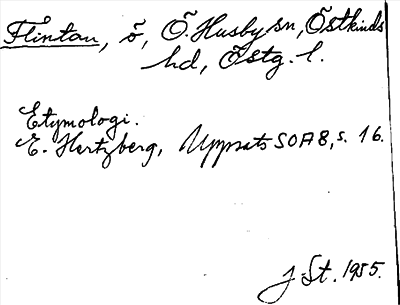 Flintan, ö, Ö. Husby sn, Östkinds
hd, Östg. l.
Etymologi.
E. Hertzberg, Uppsats SOA8, s. 16.
J St. 1955.